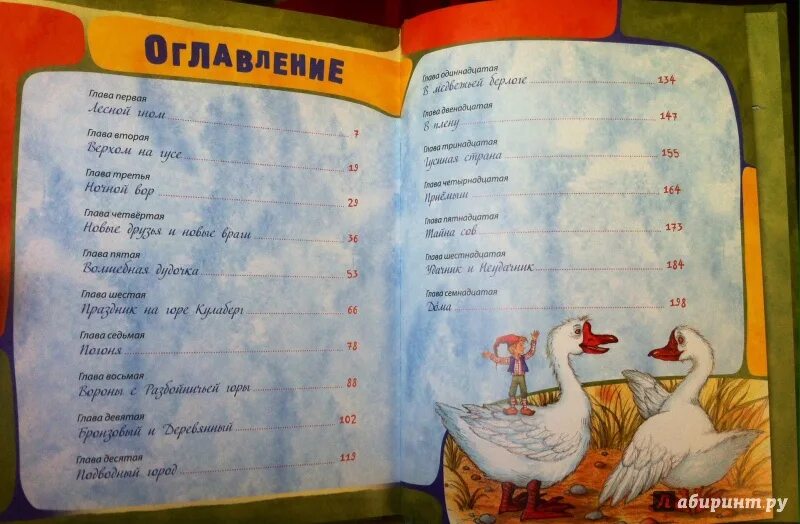 Оглавление
Глава первая
Лесной гном 7
Глава вторая
Верхом на гусе 19
Глава третья
Ночной вор 29
Глава четвёртая
Новые друзья и новые враги 36
Глава пятая
Волшебная дудочка 53
Глава шестая
Праздник на горе Кулаберг 66
Глава седьмая
Погоня 78
Глава восьмая
Вороны с Разбойничьей горы 88
Глава девятая
Бронзовый и Деревянный 102
Глава десятая
Подводный город 119
Глава одиннадцатая
В медвежьей берлоге 134
Глава двенадцатая
В плену 147
Глава тринадцатая
Гусиная страна 155
Глава четырнадцатая
Приёмыш 164
Глава пятнадцатая
Тайна сов 173
Глава шестнадцатая
Удачник и Неудачник 184
Глава семнадцатая
Дома 198
Лабиринт.ру